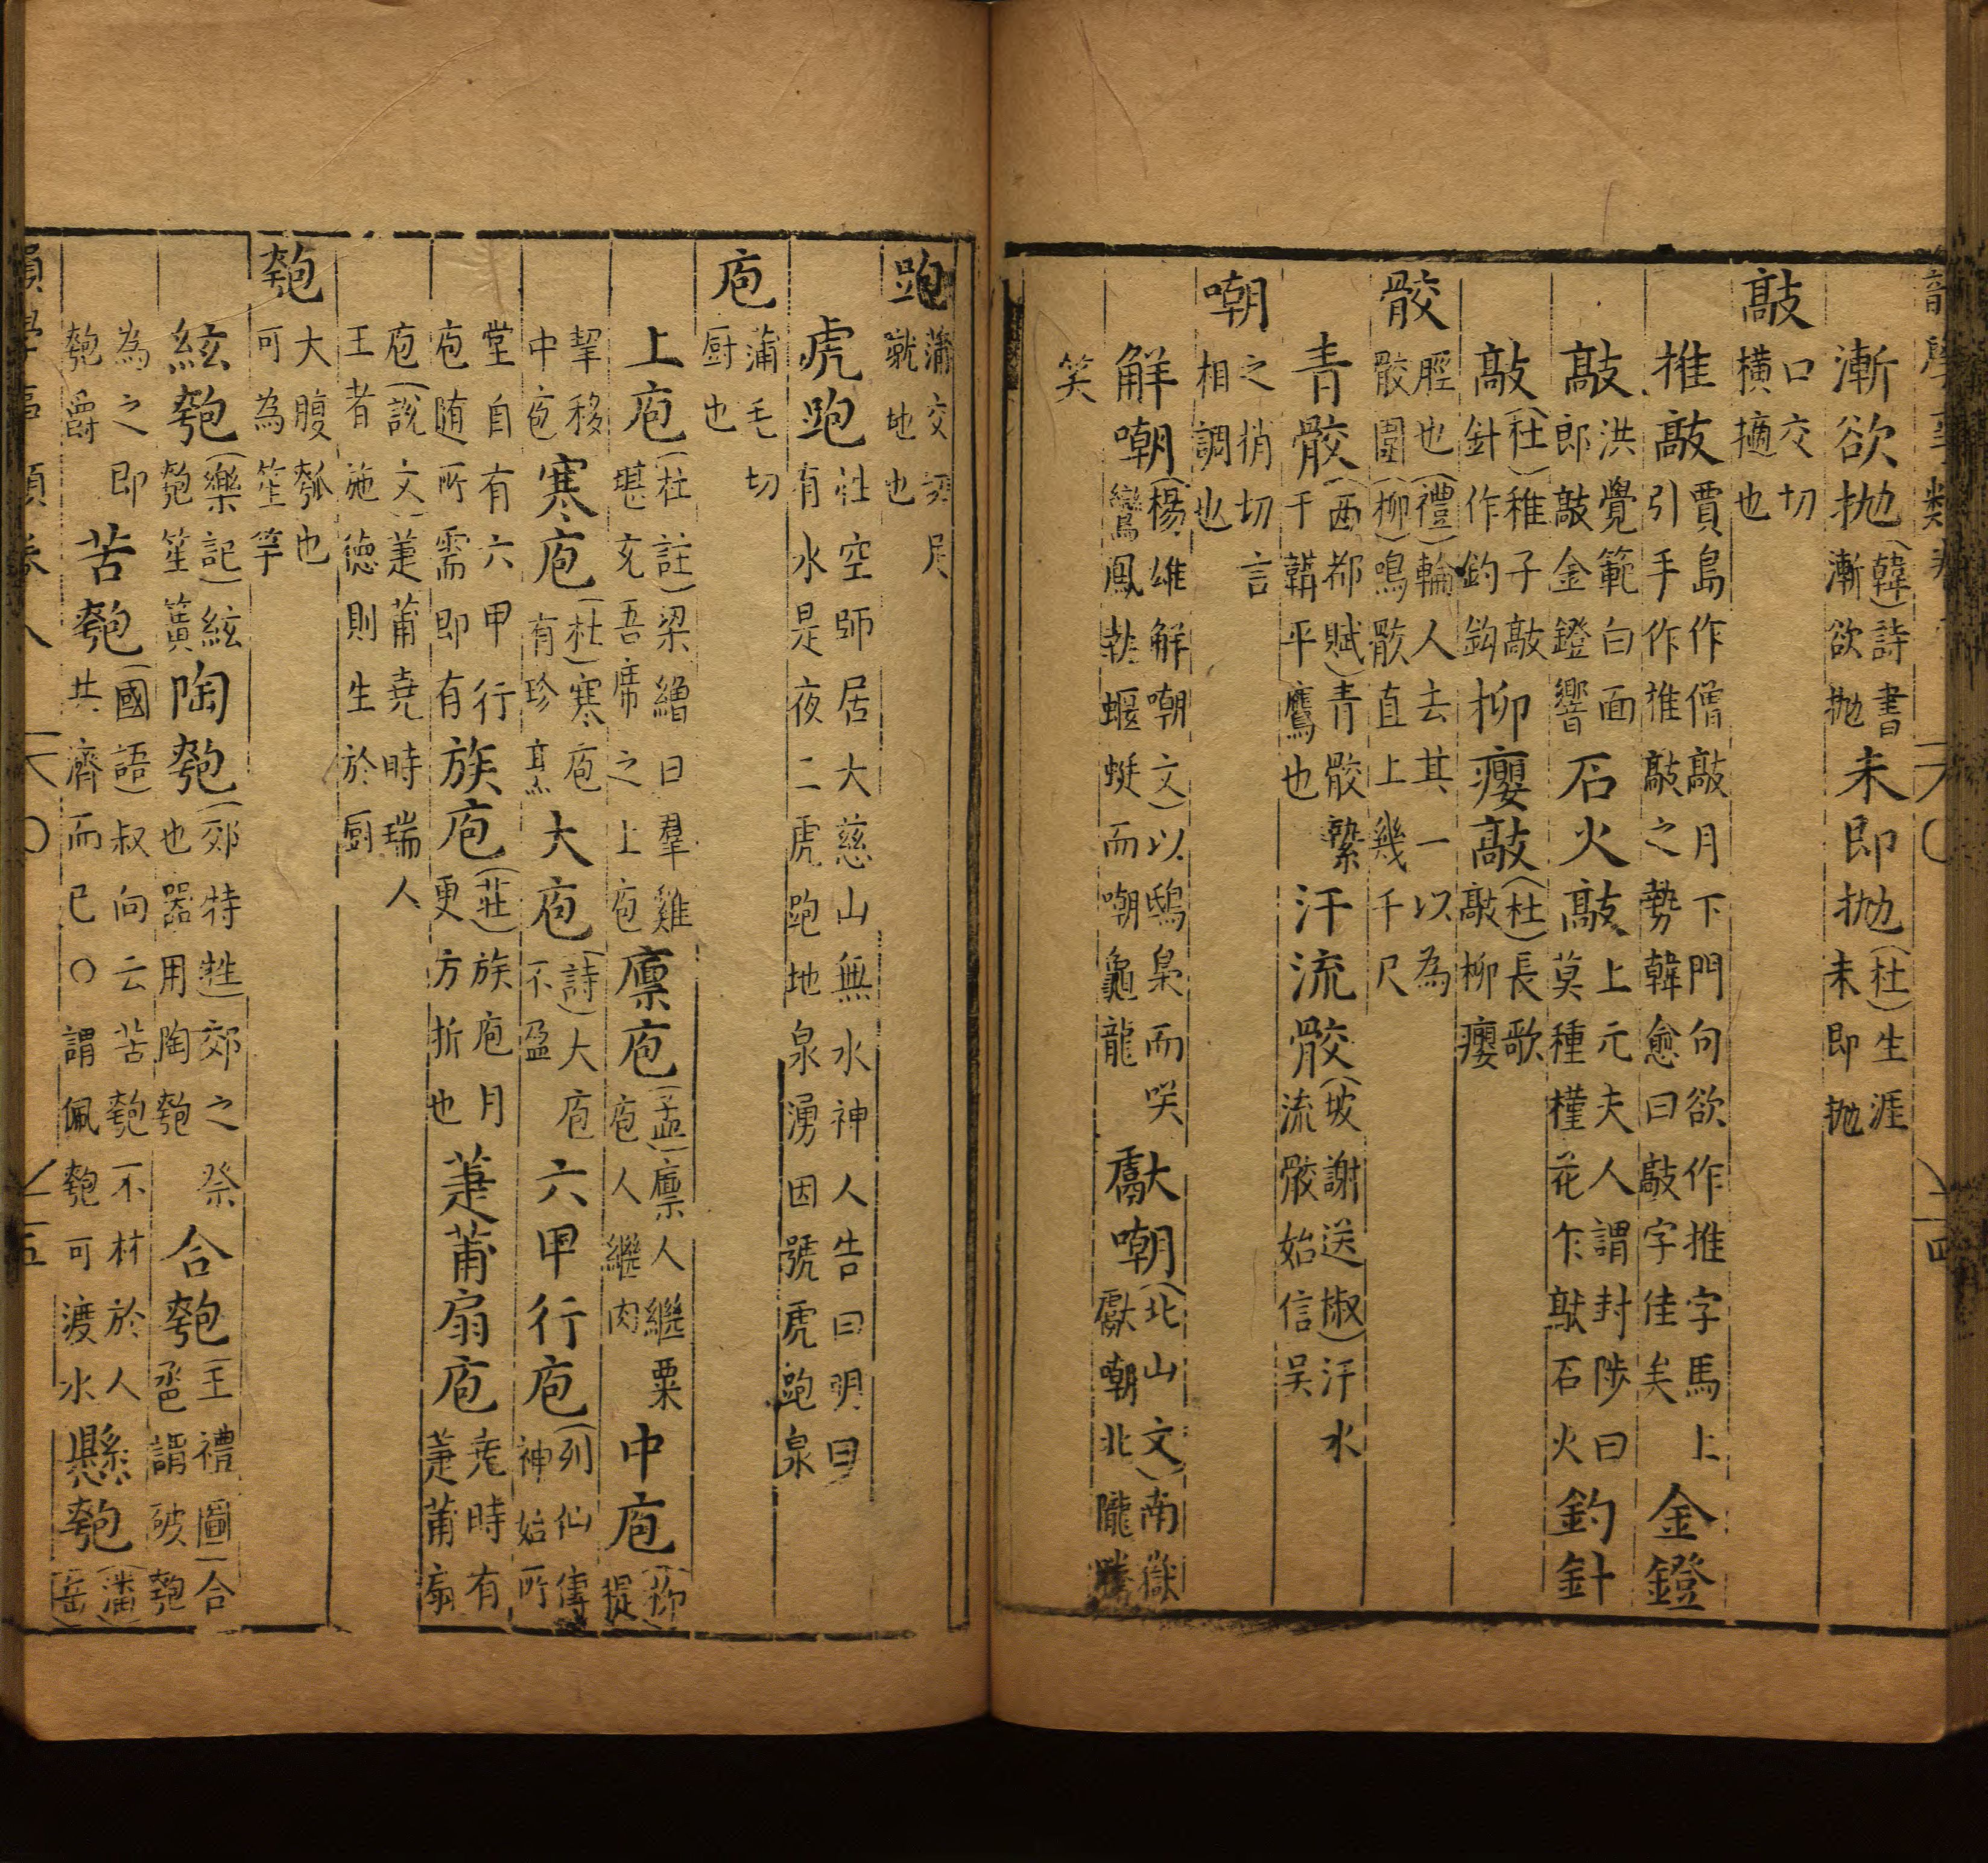 漸欲抛(韓)詩書漸欲抛未即抛(杜)生涯未即抛
敲口交切橫擿也
推敲賈島作僧敲月下門句欲作推字馬上引手作推敲之勢韓愈曰敲字佳矣金鐙
敲洪覺範白面郎敲金鐙響石火敲上元夫人謂封陟曰莫種槿花乍敲石火釣針
敲(杜)稚子敲針作釣鈎柳癭敲(杜)長歌敲柳癭
骹脛也(禮)輪人去其一以為骹圍(柳)鳴骹直上幾千尺
青骹(西都賦)青骹縶于韝平鷹也汗流骹(坡謝送椒)汗水流骹始信吳
嘲之梢切言相調也
解嘲(楊雄解嘲文)以鴟梟而咲鸞鳳執蝘蜓而嘲龜龍獻嘲(北山文)南嶽獻嘲北隴騰
笑
跑蒲交切足蹴地也
虎跑性空師居大慈山無水神人告曰明日有水是夜二虎跑地泉湧因號虎跑泉
庖蒲毛切厨也
上庖(杜註)梁繒曰羣雞堪充吾席之上庖廩庖(孟)廩人繼粟庖人繼肉中庖(柳)提
挈移中庖寒庖(杜)寒庖有珍烹大庖(詩)大庖不盈六甲行庖(列仙傳)神始所
堂自有六甲行庖随所需即有族庖(莊)族庖月更方折也萐莆扇庖堯時有萐莆扇
庖(說文)萐莆堯時瑞人王者施德則生於厨
匏大腹瓠也可為笙竽
絃匏(樂記)絃匏笙簧陶匏(郊特牲)郊之祭也器用陶匏合匏(王禮圖)合卺謂破匏
為之即匏爵苦匏(國語)叔向云苦匏不材於人共濟而已〇謂佩匏可渡水懸匏(潘岳)
韻學事類卷八